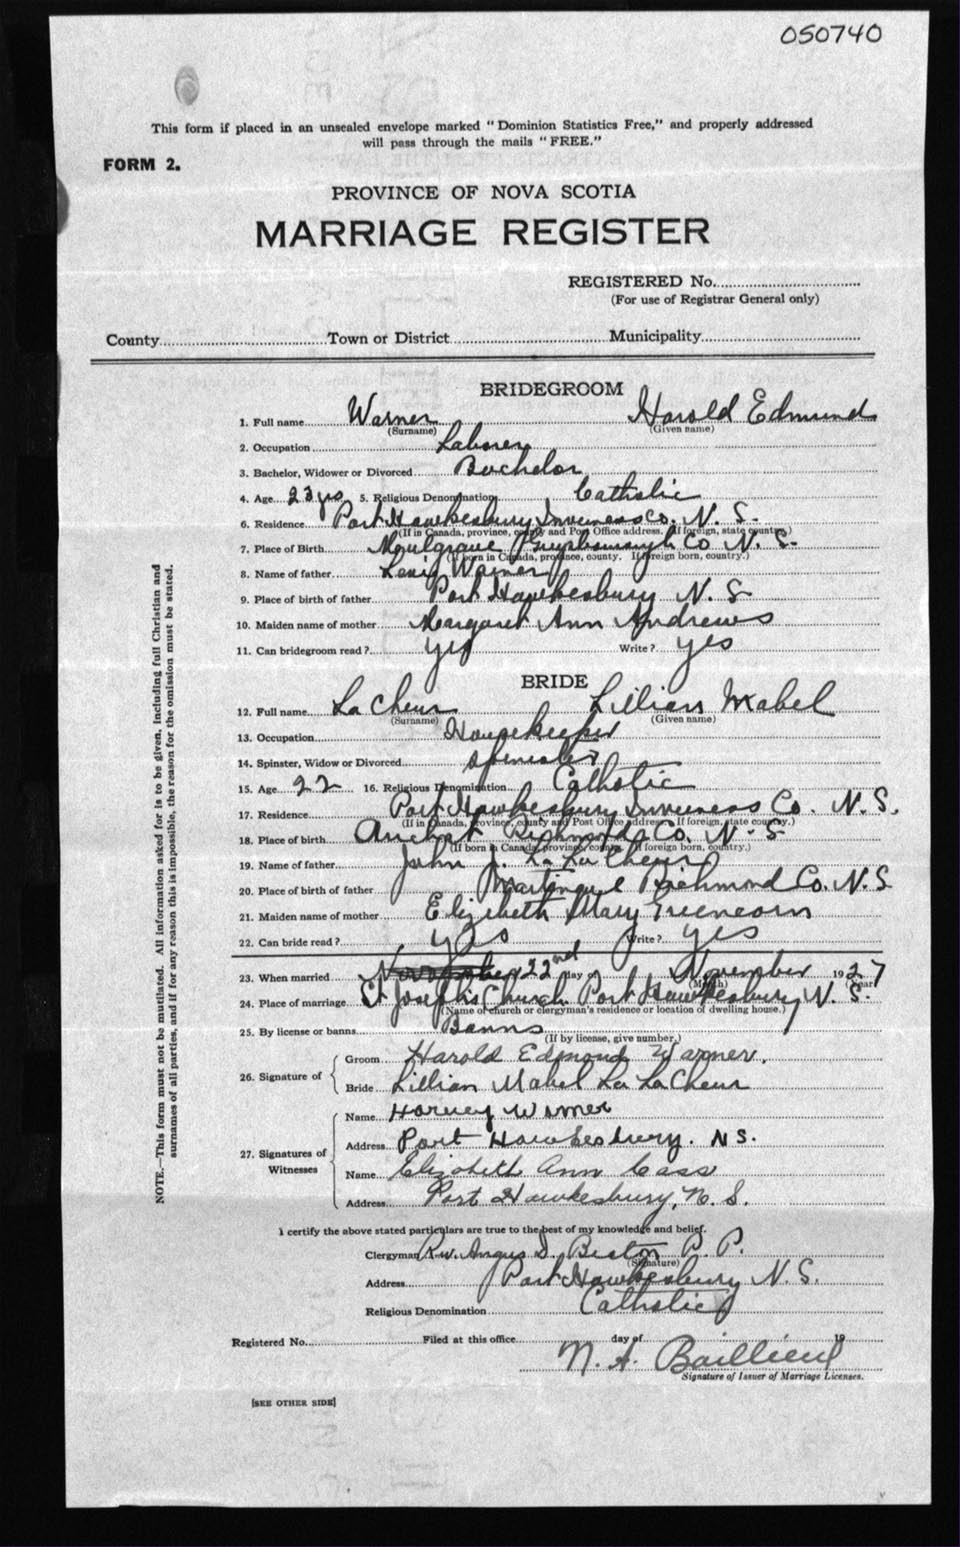 050740
This form if placed in an unsealed envelope marked "Dominion Statistics Free," and properly addressed
will pass through the mails "FREE."
FORM 2.
PROVINCE OF NOVA SCOTIA
MARRIAGE REGISTER
REGISTERED No.
(For use of Registrar General only)
County Town or District Municipality
BRIDEGROOM
1. Full name Warner Harold Edmund
(Surname) (Given name)
2. Occupation Laborer
3. Bachelor, Widower or Divorced Bachelor
4. Age 23 yrs 5. Religious Denomination Catholic
6. Residence Port Hawkesbury Inverness Co. N. S.
(If in Canada, province, county and Post Office address. If foreign, state country.)
7. Place of Birth Mulgrave Guysborough Co N. S.
(If born in Canada, province, county. If foreign born, country.)
8. Name of father Levi Warner
9. Place of birth of father Port Hawkesbury N. S
10. Maiden name of mother Margaret Ann Andrews
11. Can bridegroom read? yes Write? yes
BRIDE
12. Full name La Cheur Lillian Mabel
(Surname) (Given name)
13. Occupation Housekeeper
14. Spinster, Widow or Divorced Spinster
15. Age 22 16. Religious Denomination Catholic
17. Residence Port Hawkesbury Inverness Co. N. S.
(If in Canada, province, county and Post Office address. If foreign, state country.)
18. Place of birth Arichat Richmond Co. N. S
(If born in Canada, province, county. If foreign born, country.)
19. Name of father John J. La La Cheur
20. Place of birth of father Martinique Richmond Co. N. S
21. Maiden name of mother Elizibeth Mary Greencorn
22. Can bride read? yes Write? yes
23. When married November 22nd day of November 1927
(Month) (Year)
24. Place of marriage St Joseph's Church Port Hawkesbury N. S.
(Name of church or clergyman's residence or location of dwelling house.)
25. By license or banns Banns
(If by license, give number.)
26. Signature of
Groom Harold Edmond Warner.
Bride Lillian Mabel La LaCheur
27. Signatures of Witnesses
Name Harvey Warner
Address Port Hawkesbury. N S.
Name Elizabeth Ann Cass
Address Port Hawkesbury, N. S.
I certify the above stated particulars are true to the best of my knowledge and belief.
Clergyman Rev. Angus D. Beaton P. P.
(Signature)
Address Port Hawkesbury N. S.
Religious Denomination Catholic
Registered No. Filed at this office day of 19
N. A. Baillieul
Signature of Issuer of Marriage Licenses.
[SEE OTHER SIDE]
NOTE.—This form must not be mutilated. All information asked for is to be given, including full Christian and
surnames of all parties, and if for any reason this is impossible, the reason for the omission must be stated.